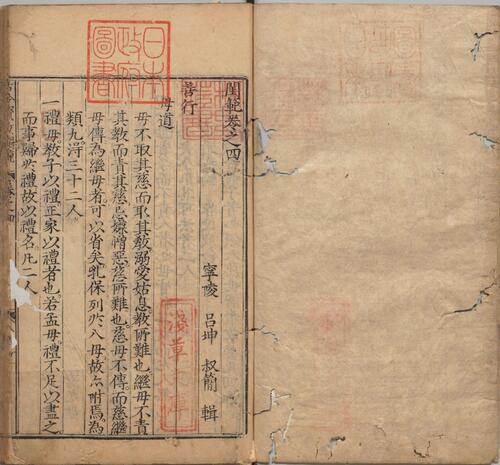 閨範卷之四
寧陵 呂坤 叔簡 輯
善行
母道
母不取其慈而取其教溺愛姑息教所難也繼母不責
其教而責其慈忌嫌憎惡慈所難也慈母不傳而慈繼
母傳為繼母者可以省矣乳保列於八母故亦附焉為
類九得三十二人
一禮母教子以禮正家以禮者也若孟母禮不足以盡之
而事歸於禮故以禮名凡二人
日本
政府
圖書
淺草文庫